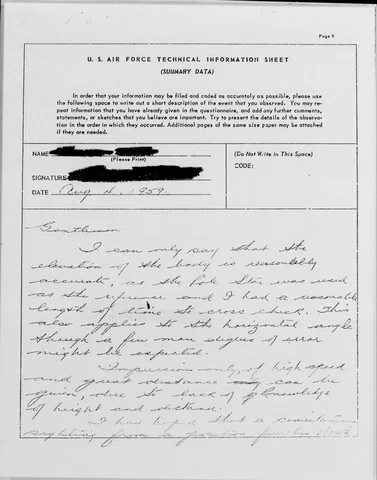 Page 9
U. S. AIR FORCE TECHNICAL INFORMATION SHEET
(SUMMARY DATA)
In order that your information may be filed and coded as accurately as possible, please use
the following space to write out a short description of the event that you observed. You may re-
peat information that you have already given in the questionnaire, and add any further comments,
statements, or sketches that you believe are important. Try to present the details of the observa-
tion in the order in which they occurred. Additional pages of the same size paper may be attached
if they are needed.
NAME
(Please Print)
SIGNATURE
DATE Aug 4, 1959.
(Do Not Write in This Space)
CODE:
Gentlemen
I can only say that the
elevation of the body is reasonably
accurate, as the Pole Star was used
as the reference and I had a reasonable
length of time to cross check. This
also applies to the horizontal angle
though a few more degrees of error
might be expected.
Impressions only, of high speed
and great distance can be
given, due to lack of knowledge
of height and distance.
I had hoped that a
sighting from a position further